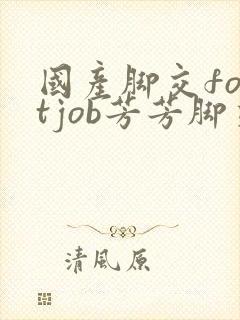 國產脚交foo
tjob芳芳脚交
清風原